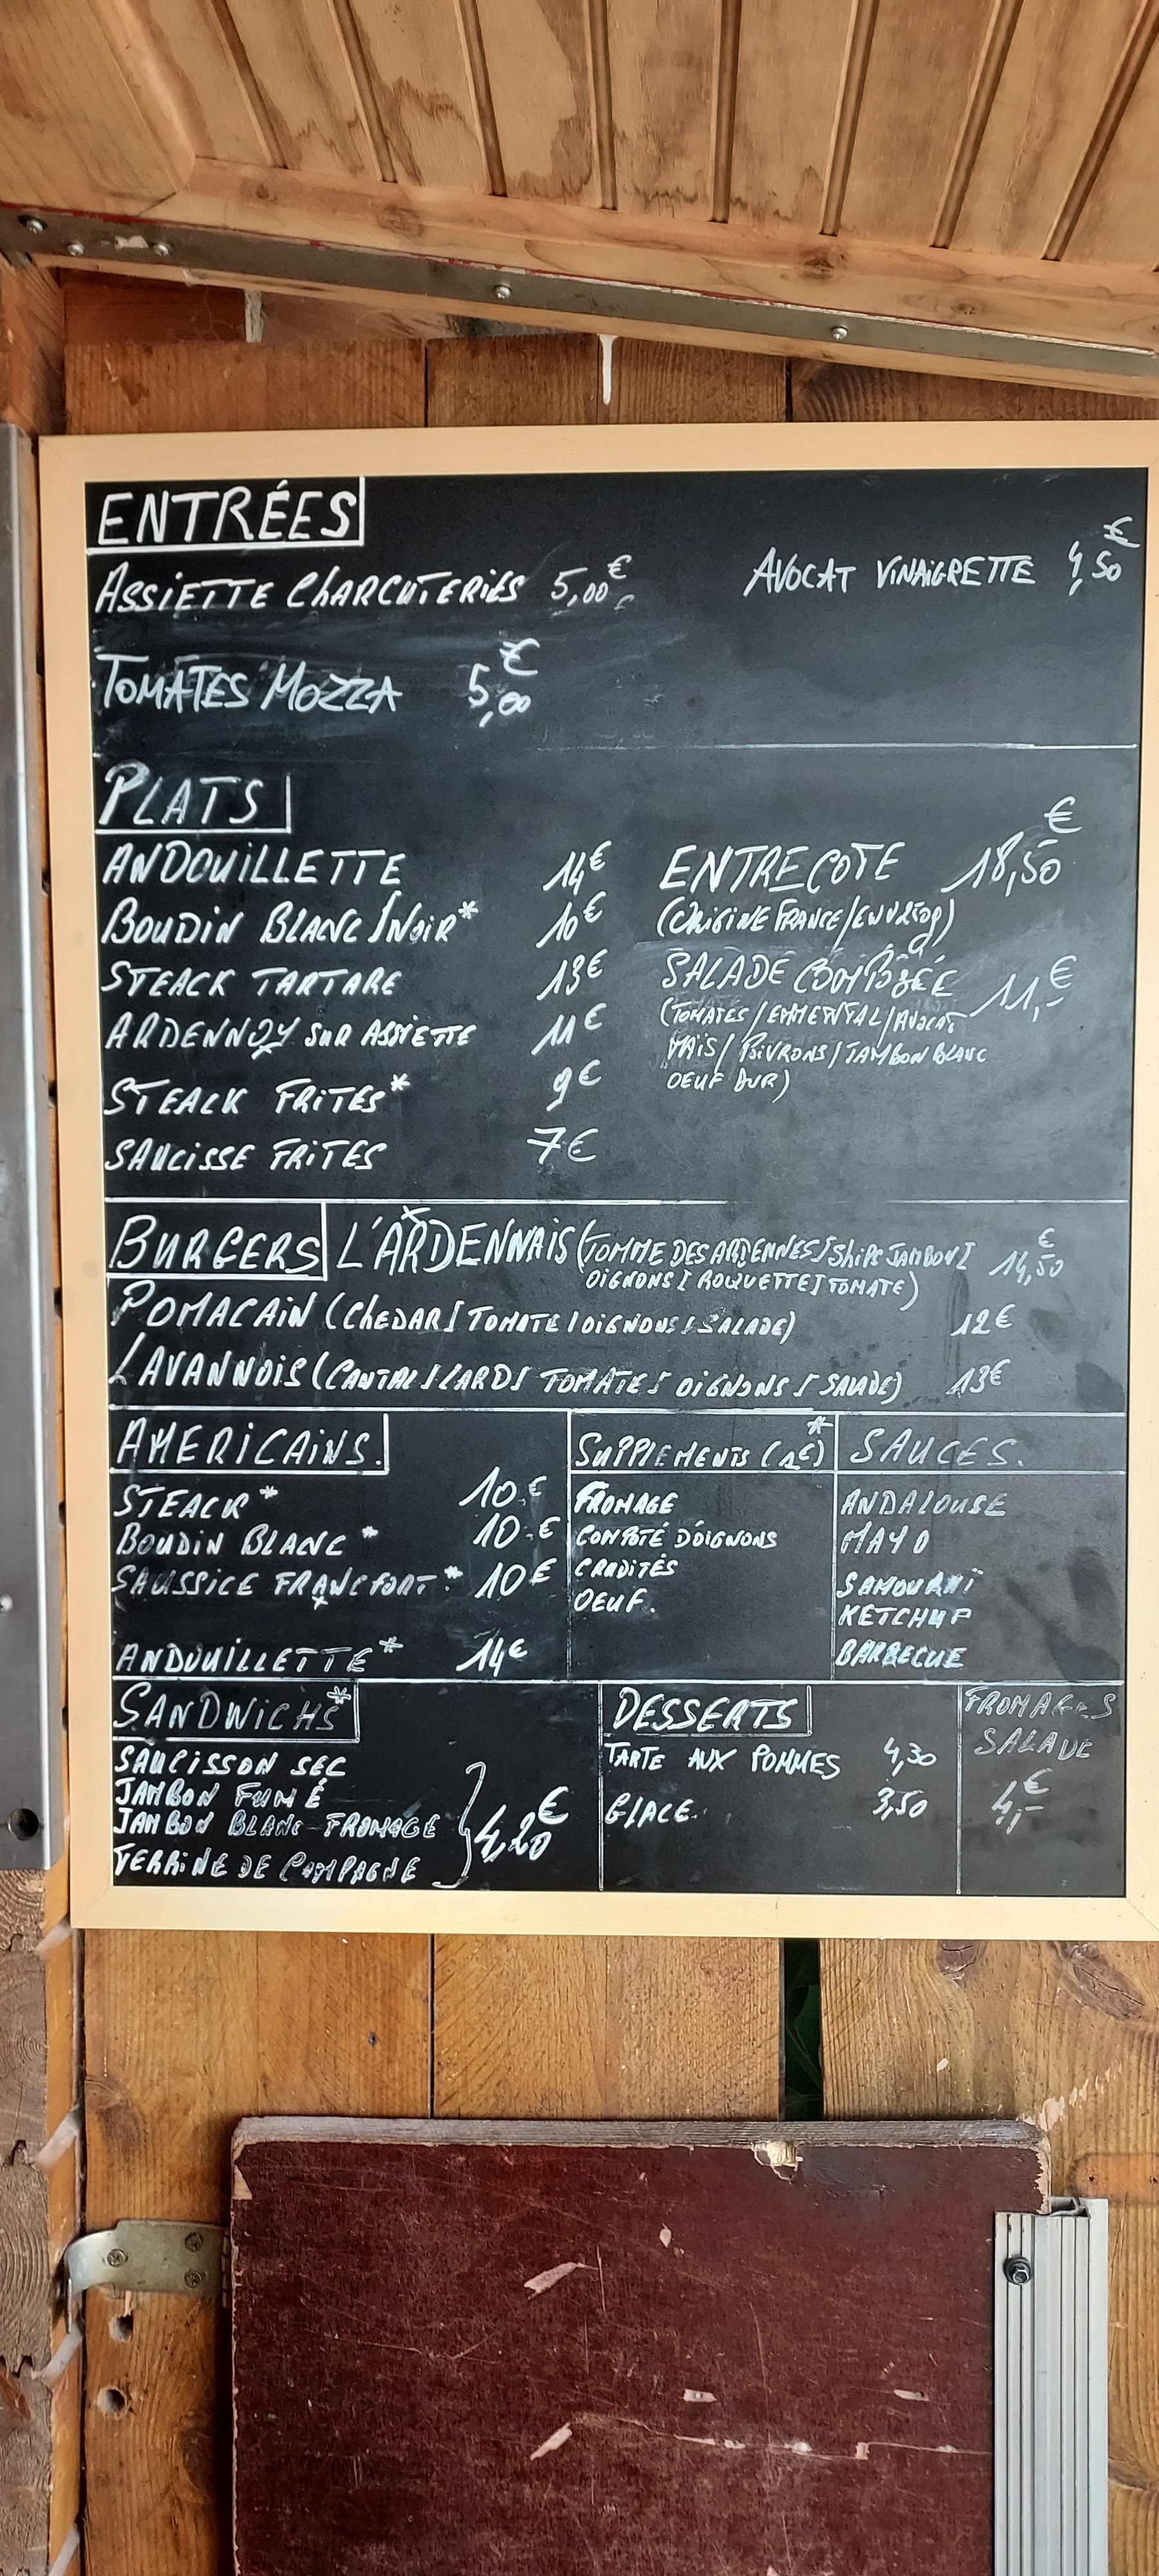 ENTRÉES
ASSIETTE CHARCUTERIES 5,00€
AVOCAT VINAIGRETTE 4,50€
TOMATES MOZZA 5,00€
PLATS
ANDOUILLETTE 14€
BOUDIN BLANC/NOIR* 10€
STEACK TARTARE 13€
ARDENNOY SUR ASSIETTE 11€
STEACK FRITES* 9€
SAUCISSE FRITES 7€
ENTRECOTE 18,50€
(ORIGINE FRANCE/ENV 250g)
SALADE COMPOSÉE 11,-€
(TOMATES/EMMENTAL/AVOCAT
MAÏS/POIVRONS/JAMBON BLANC
OEUF DUR)
BURGERS L'ARDENNAIS (TOMME DES ARDENNES/SHIPS JAMBON/ 14,50€
OIGNONS/ROQUETTE/TOMATE)
POMACAIN (CHEDAR/TOMATE/OIGNONS/SALADE) 12€
LAVANNOIS (CANTAL/LARD/TOMATES/OIGNONS/SALADE) 13€
AMERICAINS.
STEACK* 10€
BOUDIN BLANC* 10€
SAUSSICE FRANCFORT* 10€
ANDOUILLETTE* 14€
SUPPLEMENTS (1€)*
FROMAGE
COMPOTÉ D'OIGNONS
CRUDITÉS
OEUF.
SAUCES.
ANDALOUSE
MAYO
SAMOURAÏ
KETCHUP
BARBECUE
SANDWICHS*
SAUCISSON SEC
JAMBON FUMÉ
JAMBON BLANC FROMAGE
TERRINE DE CAMPAGNE
4,20€
DESSERTS
TARTE AUX POMMES 4,30
GLACE 3,50
FROMAGES
SALADE
4,-€